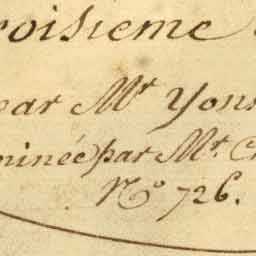 roisieme
par Mr Yon
minée par Mr. C
No. 726.